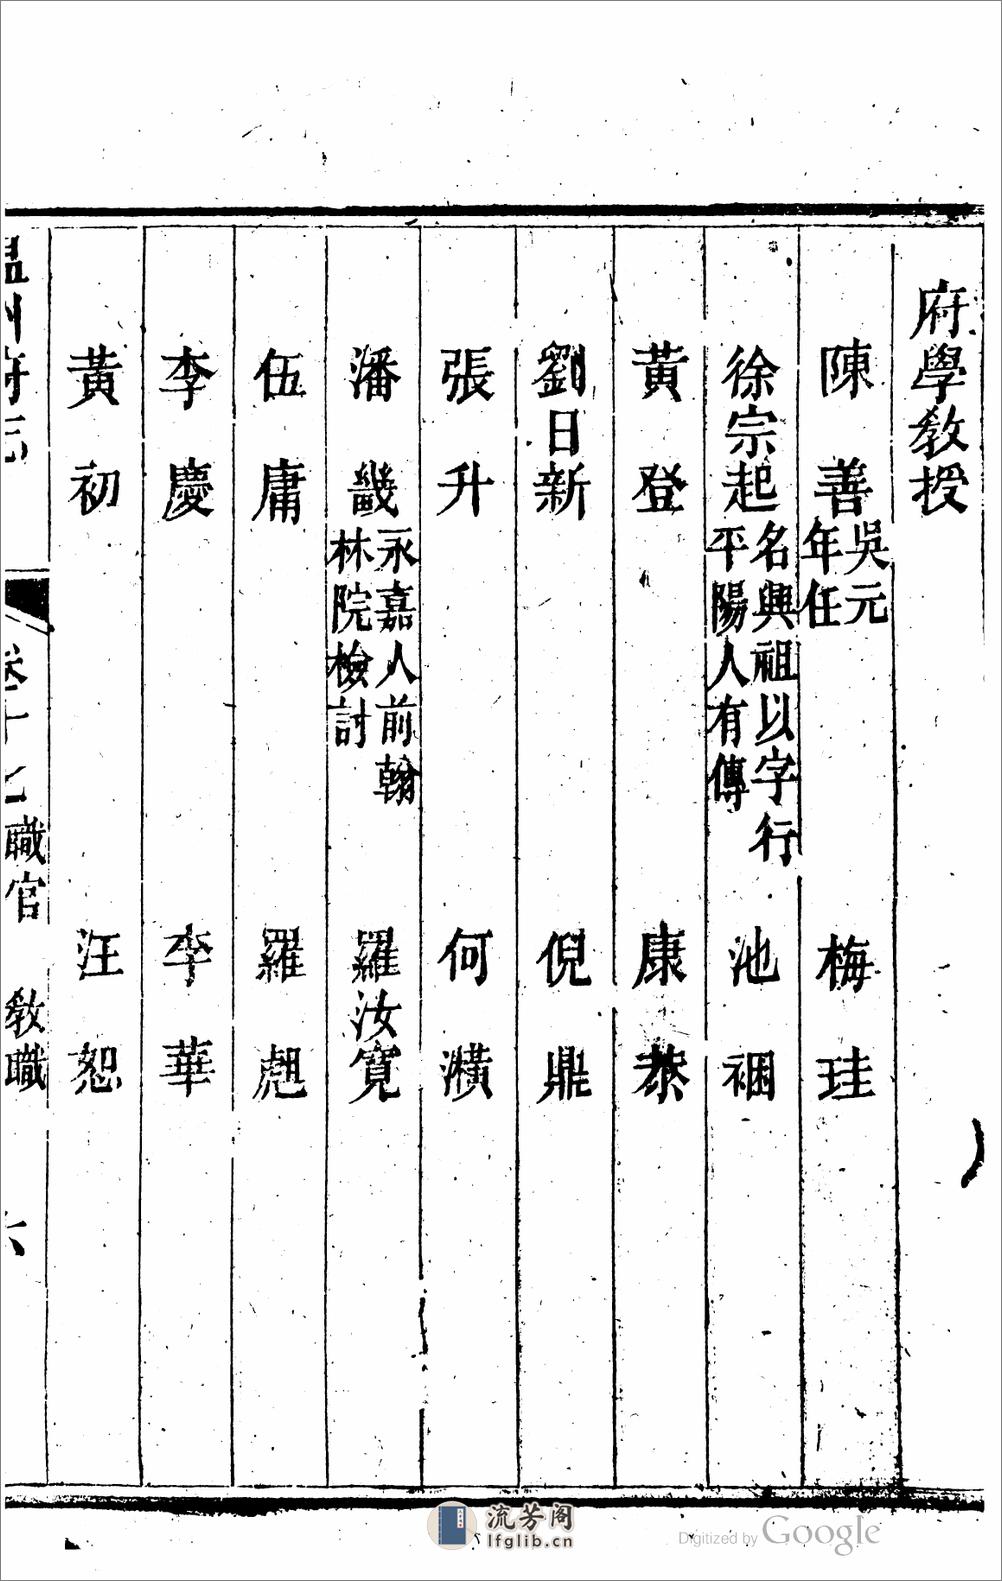 府學教授
陳善 吳元年任 梅珪
徐宗起 名興祖以字行平陽人有傳 池裍
黃登 康㤗
劉日新 倪鼎
張升 何瀇
潘畿 永嘉人前翰林院檢討 羅汝寬
伍庸 羅魁
李慶 李華
黃初 汪恕
溫州府志 卷十七 職官 教職 六
流芳阁
lfglib.cn
Digitized by Google